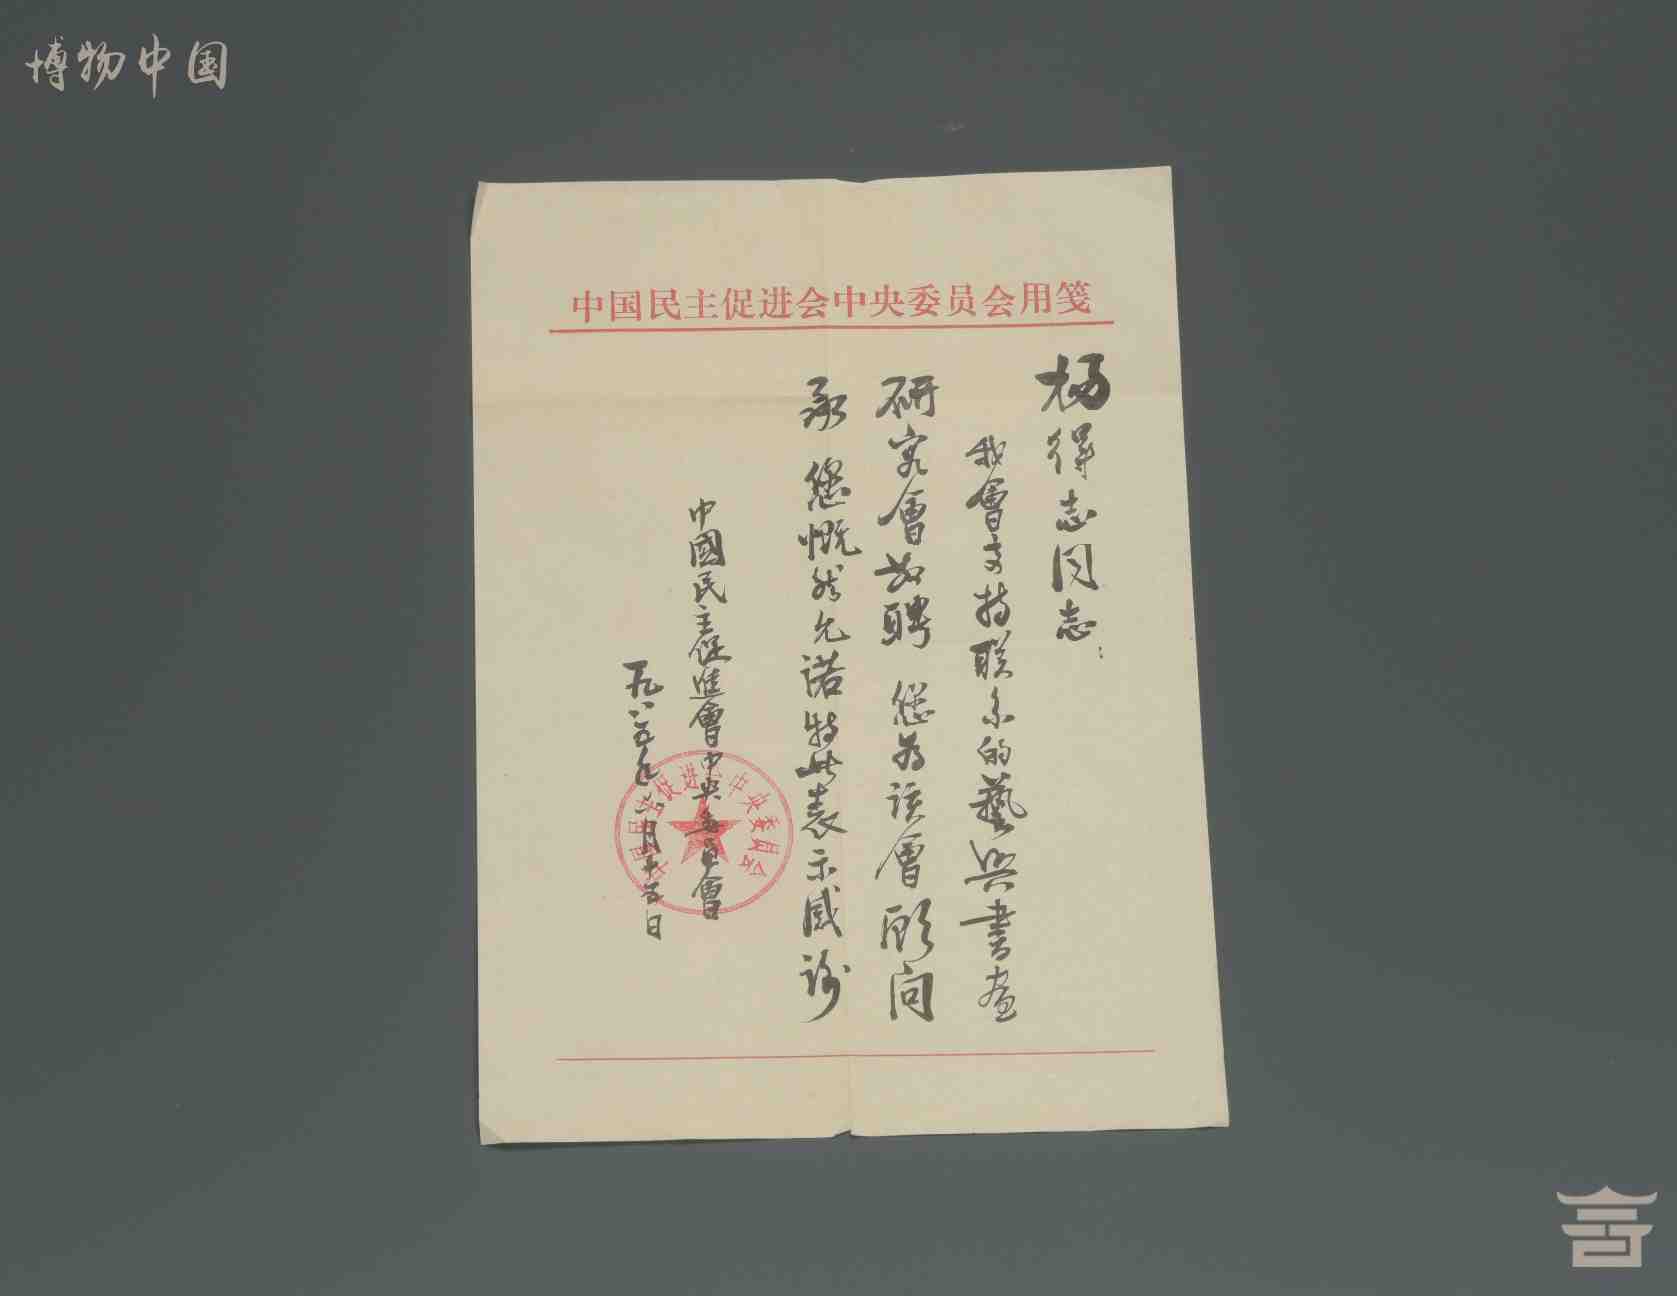 博物中国
中国民主促进会中央委员会用笺
杨得志同志：
我會支持联系的藝兴書画
研究會敬聘 您为该會顾问
承 您慨然允诺特此表示感谢
中國民主促進會中央委員會
一九八五年 月十五日
中国民主促进会中央委员会